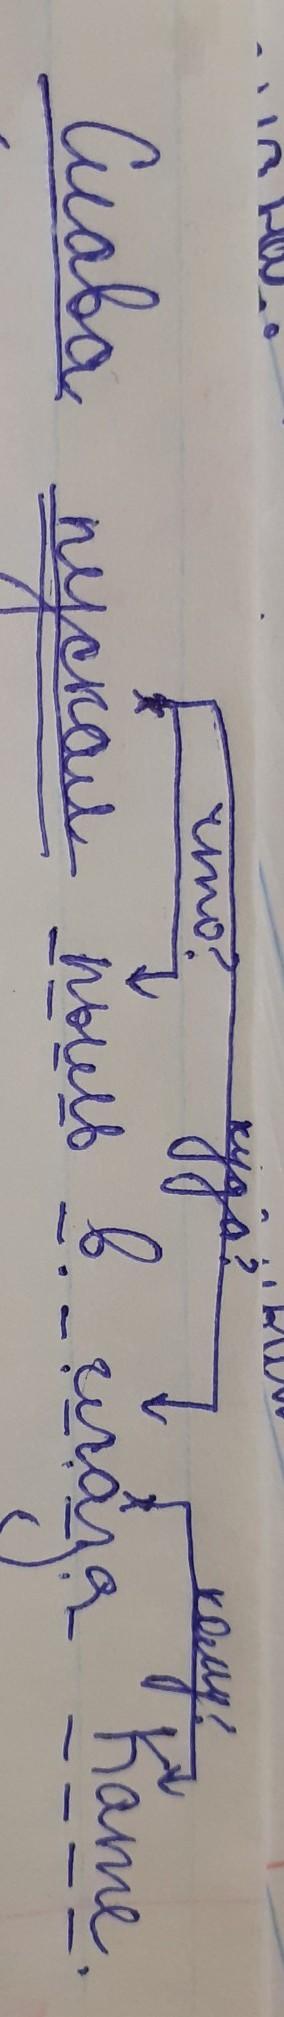 что? куда? кому?
Слава пускал пыль в глаза Кате.